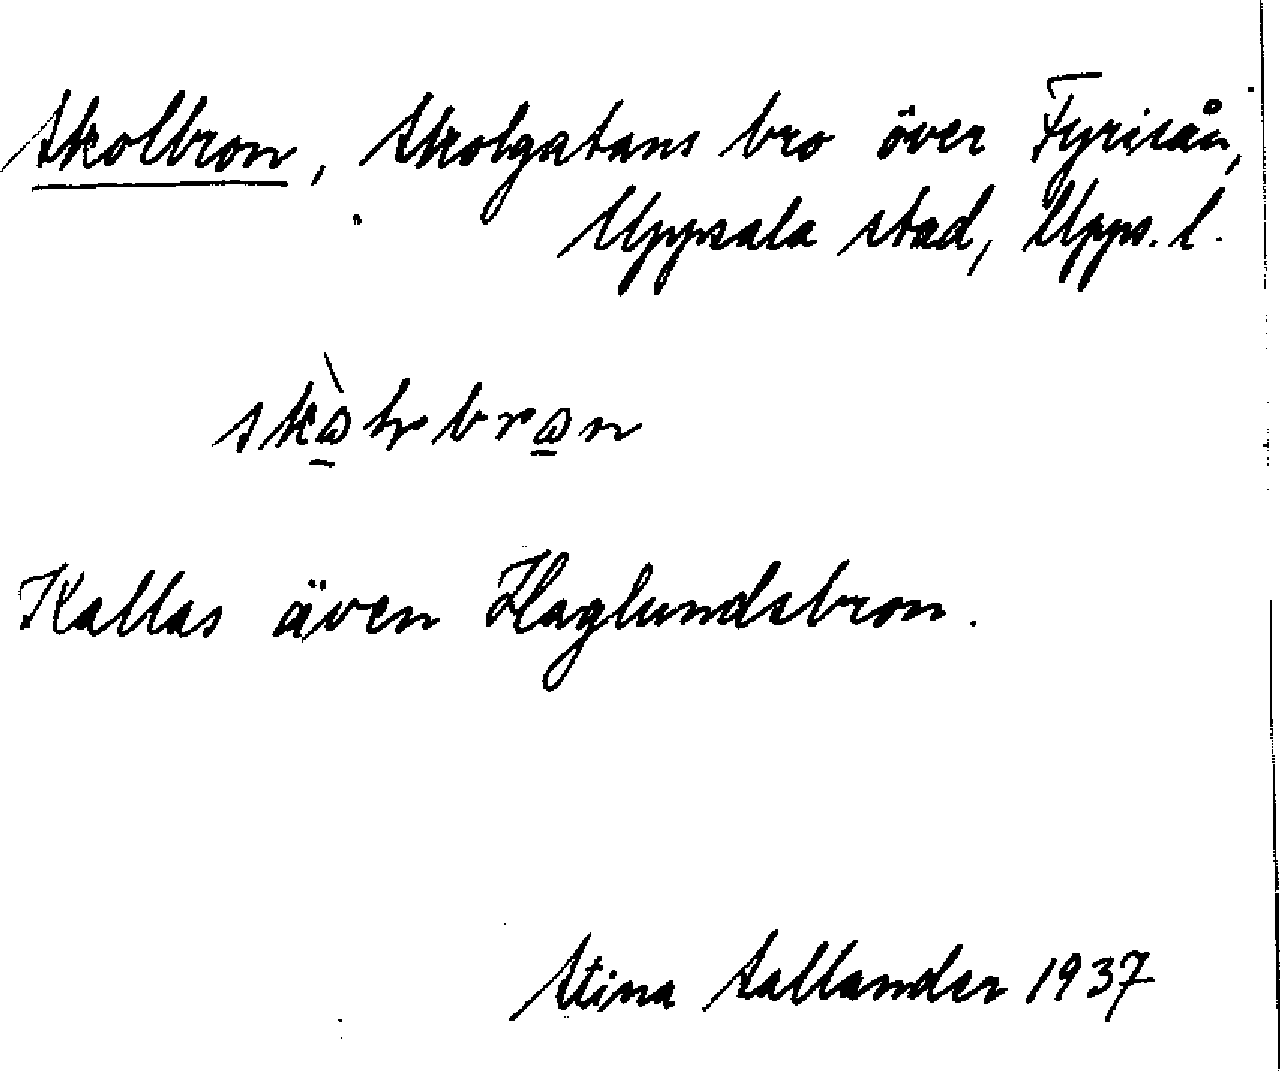 Skolbron, Skolgatans bro över Fyrisån,
Uppsala stad, Upps. l.
Kallas även Haglundsbron.
Stina Sallander 1937